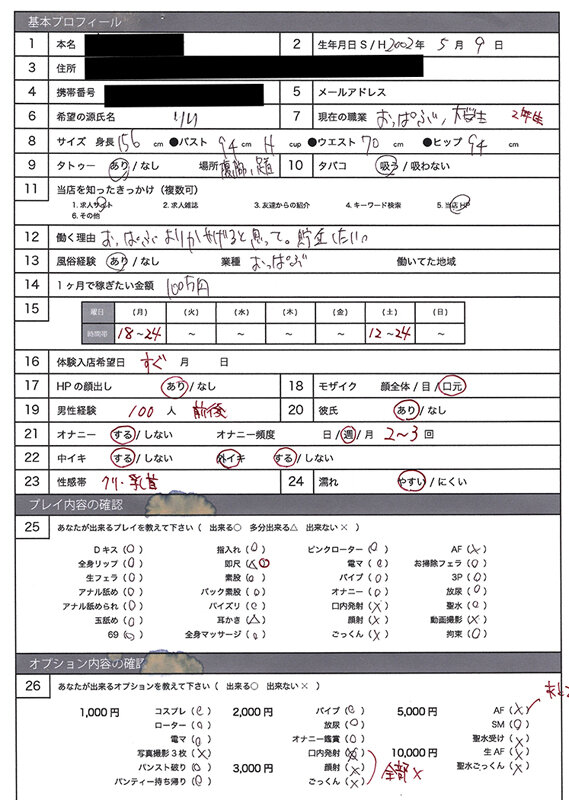 基本プロフィール
1 本名 2 生年月日 S / H 2002年 5月 9日
3 住所
4 携帯番号 5 メールアドレス
6 希望の源氏名 7 現在の職業 おっぱぶ, 2年生
8 サイズ 身長 156 cm ●バスト 94 cm H cup ●ウエスト 70 cm ●ヒップ 94 cm
9 タトゥー あり / なし 場所 10 タバコ 吸う / 吸わない
11 当店を知ったきっかけ(複数可)
1. 求人サイト 2. 求人雑誌 3. 友達からの紹介 4. キーワード検索 5. 当店HP
6. その他
12 働く理由 おっぱぶよりかせげると思って。貯金したい
13 風俗経験 あり / なし 業種 おっぱぶ 働いてた地域
14 1ヶ月で稼ぎたい金額 100万円
15 曜日 (月) (火) (水) (木) (金) (土) (日)
時間帯 18~24 ~ ~ ~ ~ 12~24 ~
16 体験入店希望日 すぐ 月 日
17 HPの顔出し あり / なし 18 モザイク 顔全体 / 目 / 口元
19 男性経験 100 人 前後 20 彼氏 あり / なし
21 オナニー する / しない オナニー頻度 日 / 週 / 月 2~3 回
22 中イキ する / しない 外イキ する / しない
23 性感帯 クリ・乳首 24 濡れ やすい / にくい
プレイ内容の確認
25 あなたが出来るプレイを教えて下さい( 出来る○ 多分出来る△ 出来ない× )
Dキス(○) 指入れ(○) ピンクローター(○) AF(×)
全身リップ(○) 即尺(△○) 電マ(○) お掃除フェラ(○)
生フェラ(○) 素股(○) バイブ(○) 3P(○)
アナル舐め(○) バック素股(○) オナニー(○) 放尿(○)
アナル舐められ(○) パイズリ(○) 口内発射(×) 聖水(○)
玉舐め(○) 耳かき(△) 顔射(×) 動画撮影(×)
69(○) 全身マッサージ(○) ごっくん(×) 拘束(○)
オプション内容の確認
26 あなたが出来るオプションを教えて下さい( 出来る○ 出来ない× )
1,000円 コスプレ(○) 2,000円 バイブ(○) 5,000円 AF(×)
ローター(○) 放尿(○) SM(○)
電マ(○) オナニー鑑賞(○) 聖水受け(×)
写真撮影3枚(×) 口内発射(×) 10,000円 生AF(×)
パンスト破り(○) 3,000円 顔射(×) 全部× 聖水ごっくん(×)
パンティー持ち帰り(○) ごっくん(×)